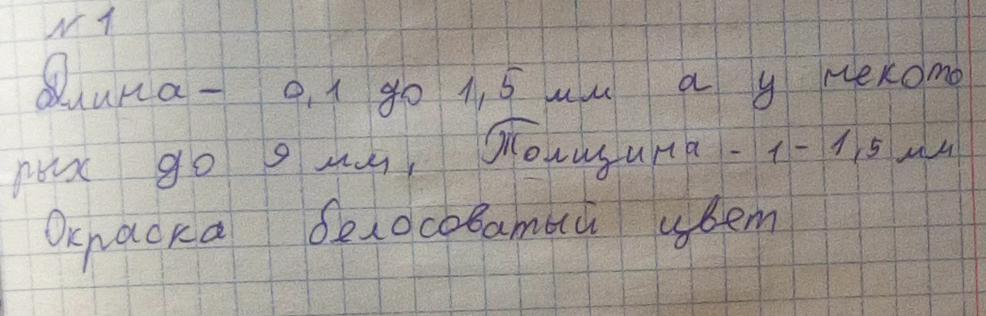 № 1
Длина - 0,1 до 1,5 мм а у некото
рых до 9 мм, Толщина - 1 - 1,5 мм
Окраска белосоватый цвет